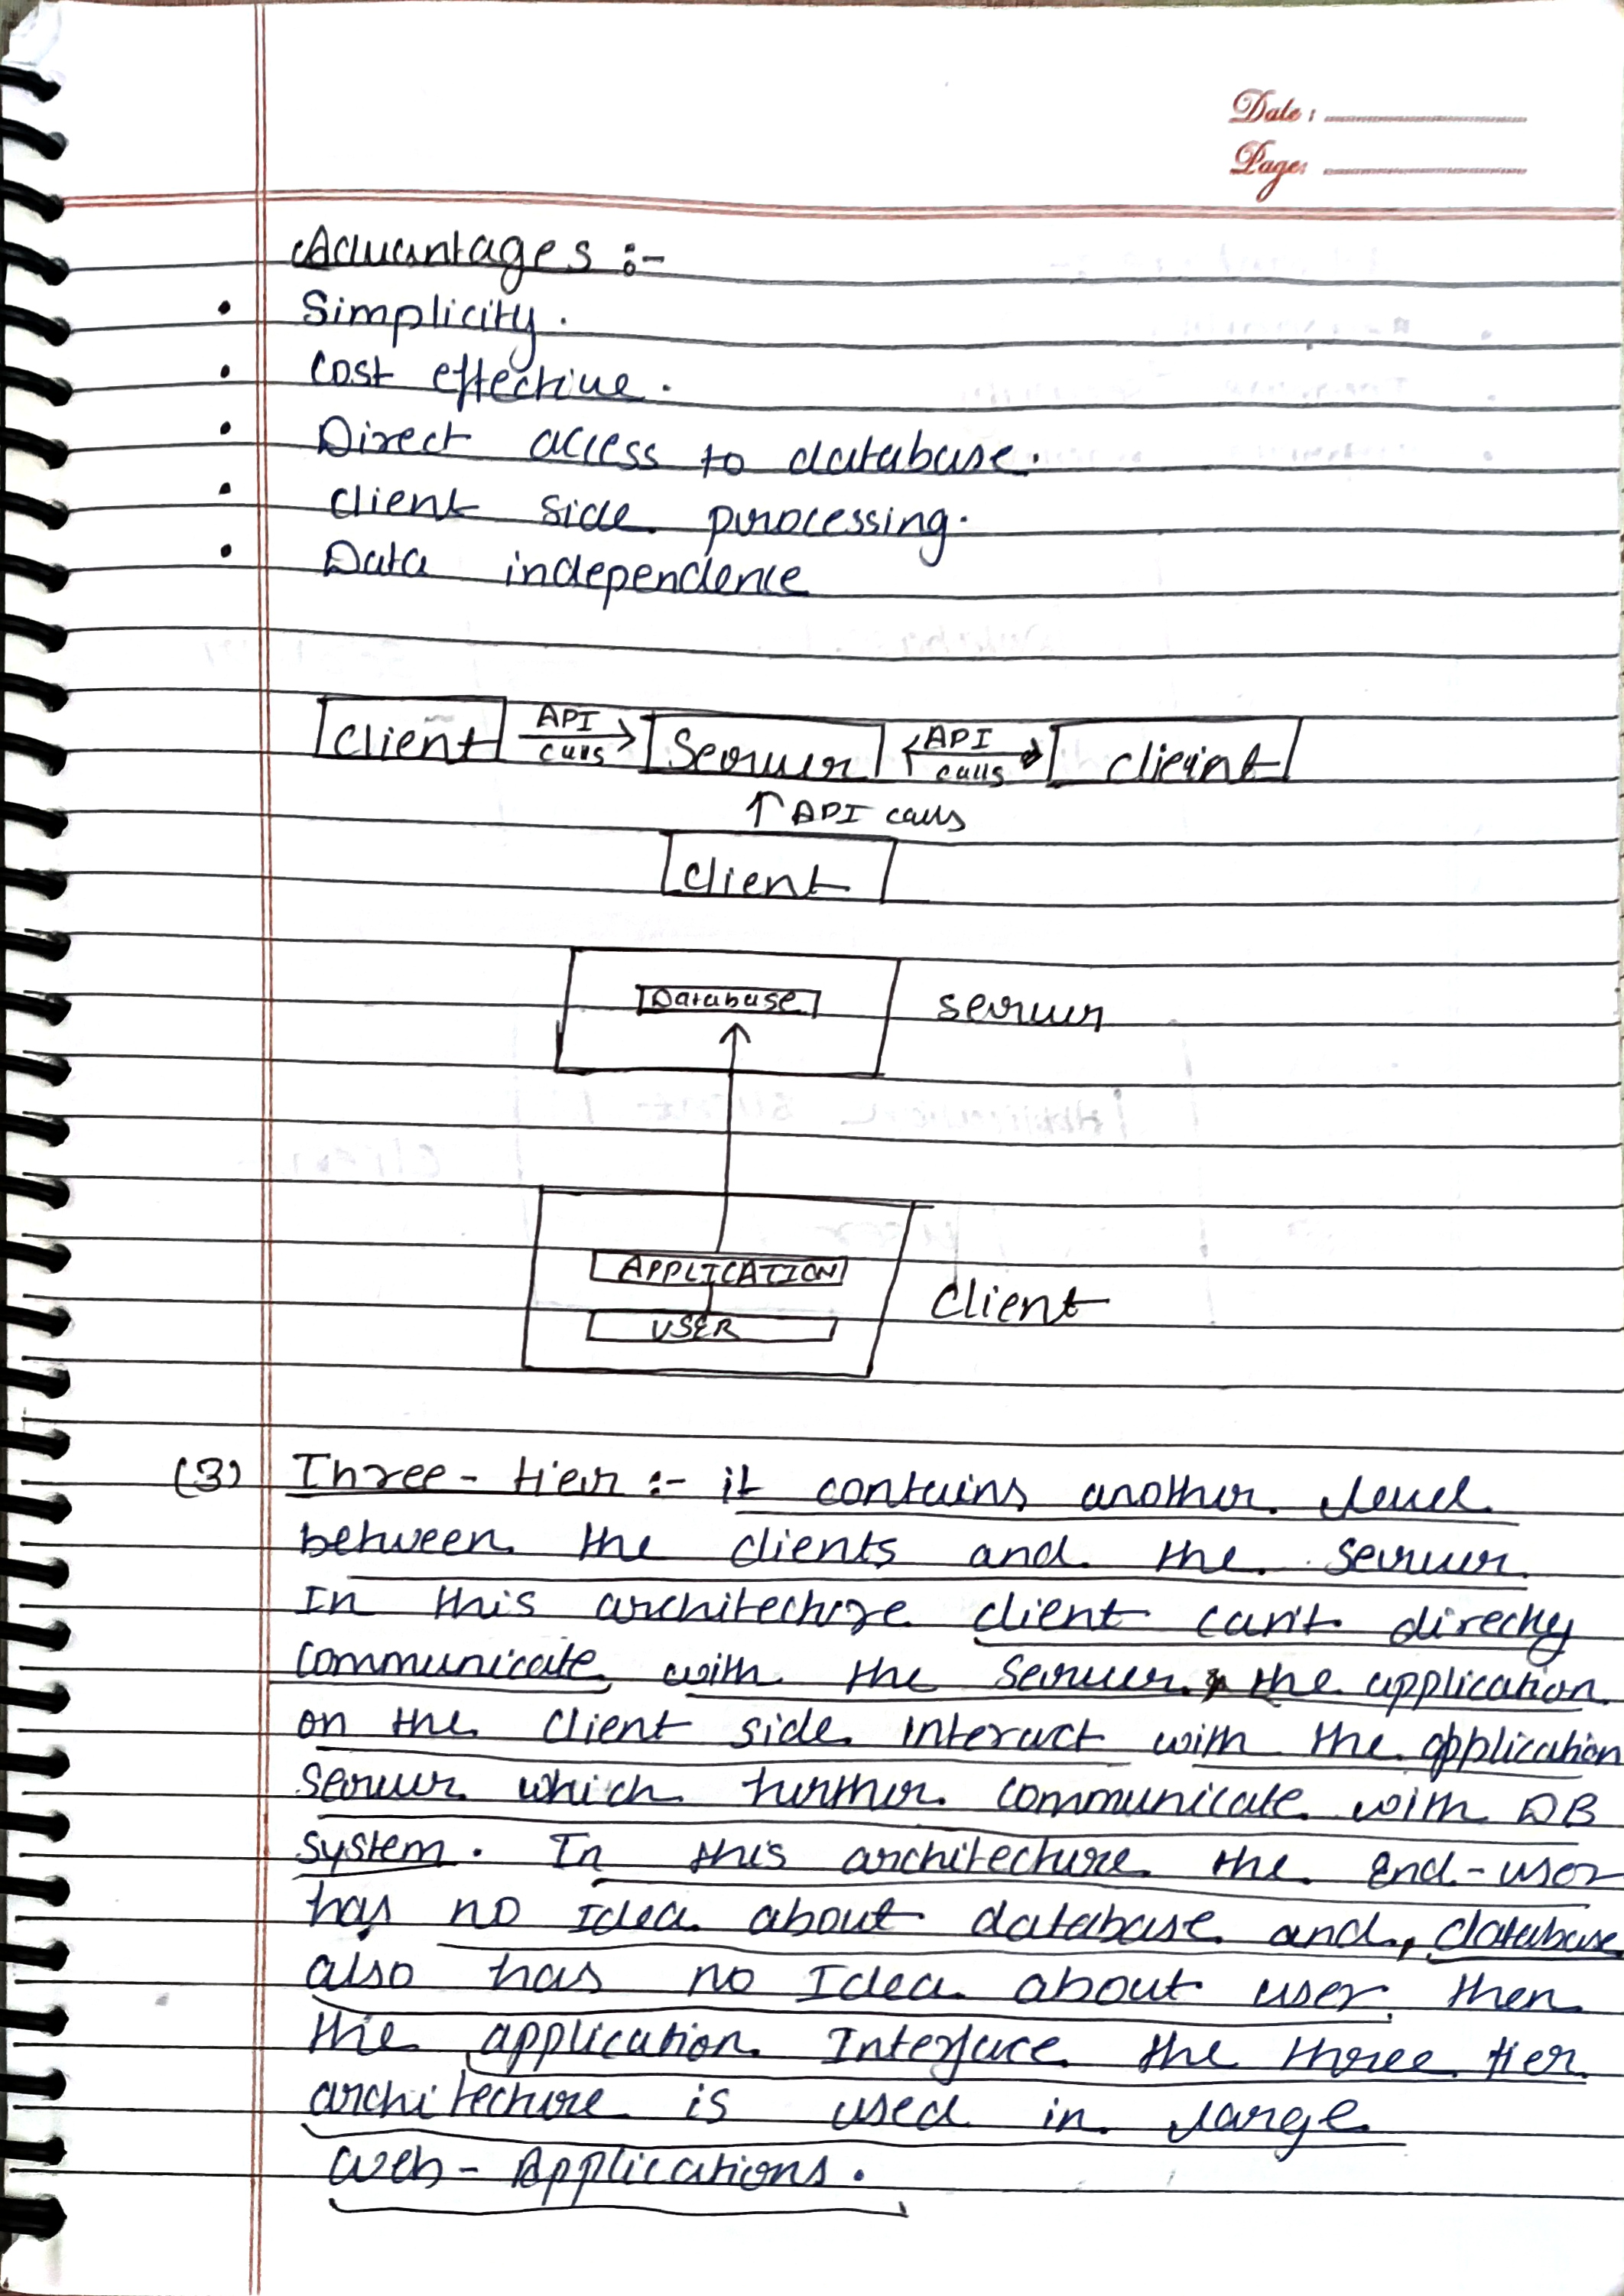 Date :
Page:
Advantages :-
• Simplicity.
• Cost effective.
• Direct access to database.
• Client side processing.
• Data independence
Client API calls Server API calls client
↑ API calls
Client
Database server
APPLICATION
USER
Client
(3) Three - tier :- it contains another level
between the clients and the server.
In this architecture client can't directly
communicate with the server, the application
on the client side interact with the application
server which further communicate with DB
system. In this architecture the end-user
has no Idea about database and, database
also has no Idea about user then
the application Interface the three tier
architecture is used in large
web - Applications.